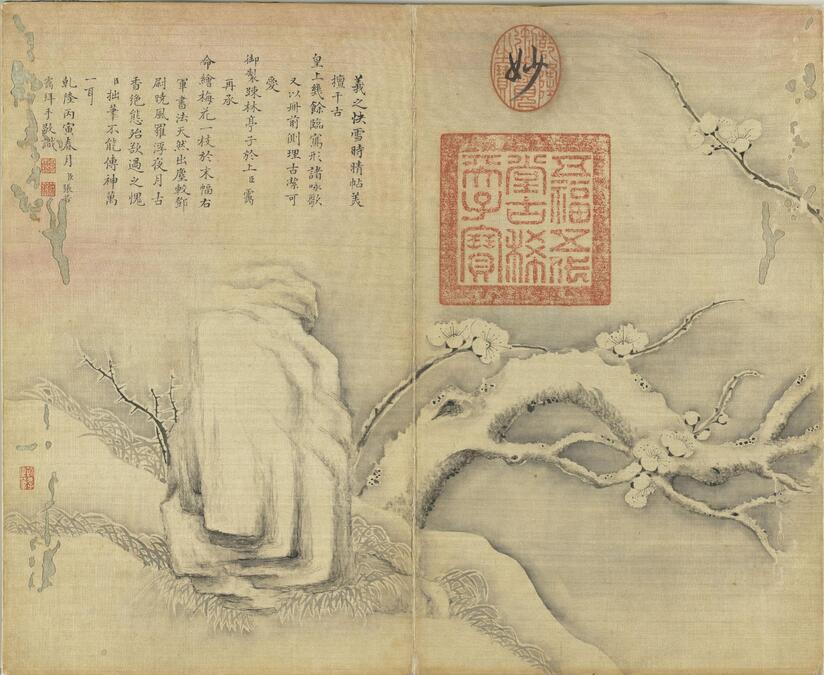 妙
五福五代
堂古稀天子寶
羲之快雪時晴帖美
擅千古
皇上幾餘臨寫形諸咏歌
又以冊前側理古潔可
愛
御製踈林亭子於上臣靄
再承
命繪梅花一枝於末幅右
軍書法天然出塵較鄧
尉曉風羅浮夜月古
香絕態殆欲過之愧
臣拙筆不能傳神萬
一耳
乾隆丙寅春月臣張若
靄拜手敬識